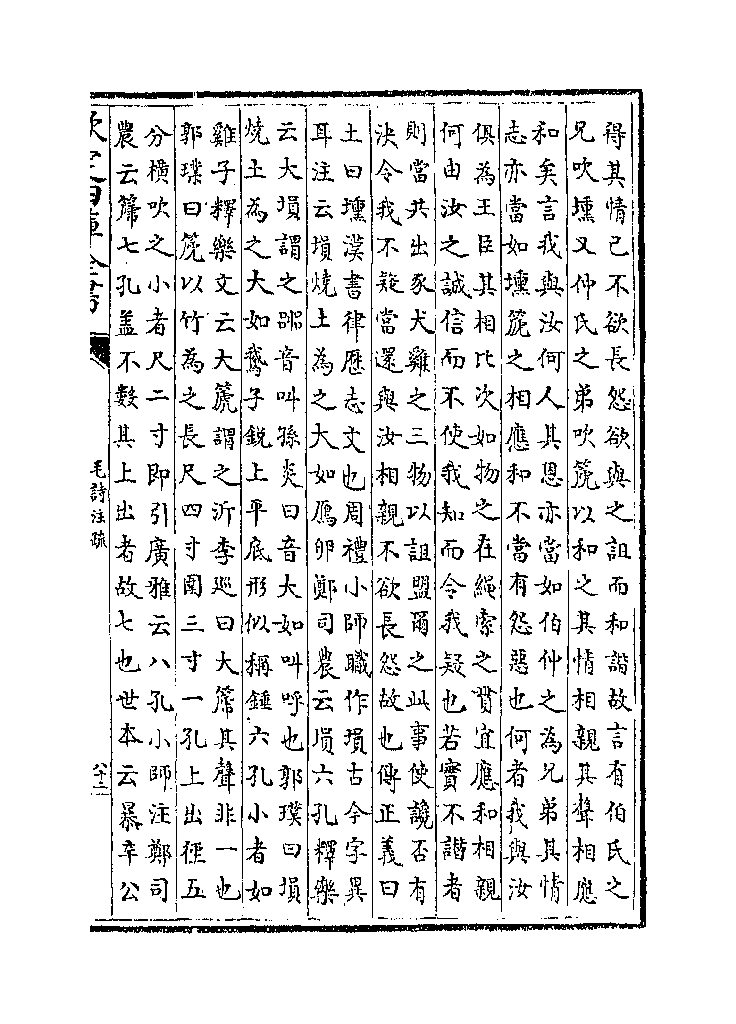 得其情己不欲長怨欲與之詛而和諧故言有伯氏之
兄吹壎又仲氏之弟吹篪以和之其情相親其聲相應
和矣言我與汝何人其恩亦當如伯仲之為兄弟其情
志亦當如壎篪之相應和不當有怨惡也何者我與汝
俱為王臣其相比次如物之在繩索之貫宜應和相親
何由汝之誠信而不使我知而令我疑也若實不譖者
則當共出豕犬雞之三物以詛盟爾之此事使讒否有
決令我不疑當還與汝相親不欲長怨故也傳正義曰
土曰壎漢書律歴志文也周禮小師職作塤古今字異
耳注云塤燒土為之大如鴈卵鄭司農云塤六孔釋樂
云大塤謂之嘂音叫孫炎曰音大如叫呼也郭璞曰塤
燒土為之大如鵞子鋭上平底形似稱錘六孔小者如
雞子釋樂文云大篪謂之沂李廵曰大篪其聲非一也
郭璞曰篪以竹為之長尺四寸圍三寸一孔上出徑五
分横吹之小者尺二寸即引廣雅云八孔小師注鄭司
農云篪七孔葢不數其上出者故七也世本云暴辛公
欽定四庫全書
毛詩注疏